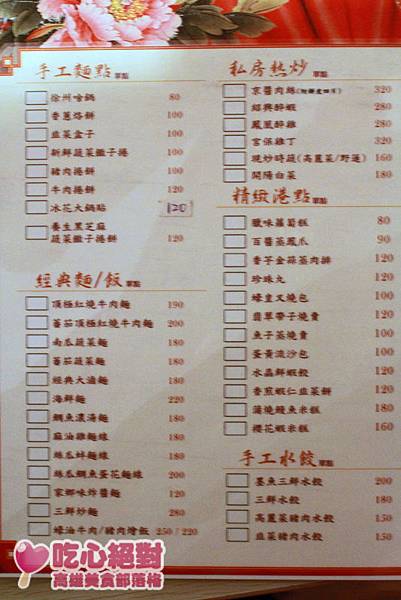 手工麵點 單點
徐州啥鍋 80
香蔥烙餅 100
韭菜盒子 100
新鮮蔬菜撒子捲 100
豬肉捲餅 100
牛肉捲餅 120
冰花大鍋貼 120
養生黑芝麻
蔬菜撒子捲餅 120
經典麵/飯 單點
頂極紅燒牛肉麵 190
蕃茄頂極紅燒牛肉麵 200
南瓜蔬菜麵 180
蕃茄蔬菜麵 180
經典大滷麵 180
海鮮麵 220
鯛魚濃湯麵 180
麻油雞麵線 180
絲瓜蚌麵線 180
絲瓜鯛魚蛋花麵線 180
家鄉味炸醬麵 120
三鮮炒麵 280
蠔油牛肉/豬肉燴飯 250 / 220
私房熱炒 單點
京醬肉絲 320
紹興醉蝦 280
鳳凰醉雞 280
宮保雞丁 320
現炒時蔬(高麗菜/野蓮) 160
開陽白菜 180
精緻港點 單點
臘味蘿蔔糕 80
百醬蒸鳳爪 90
香芋金蒜蒸肉排 120
珍珠丸 120
蠔皇叉燒包 100
翡翠帶子燒賣 120
魚子蒸燒賣 100
蛋黃流沙包 100
水晶鮮蝦餃 120
香煎蝦仁韭菜餅 120
蒲燒鰻魚米糕 180
櫻花蝦米糕 160
手工水餃 單點
墨魚三鮮水餃 200
三鮮水餃 180
高麗菜豬肉水餃 150
韭菜豬肉水餃 150
吃心絕對
高雄美食部落格